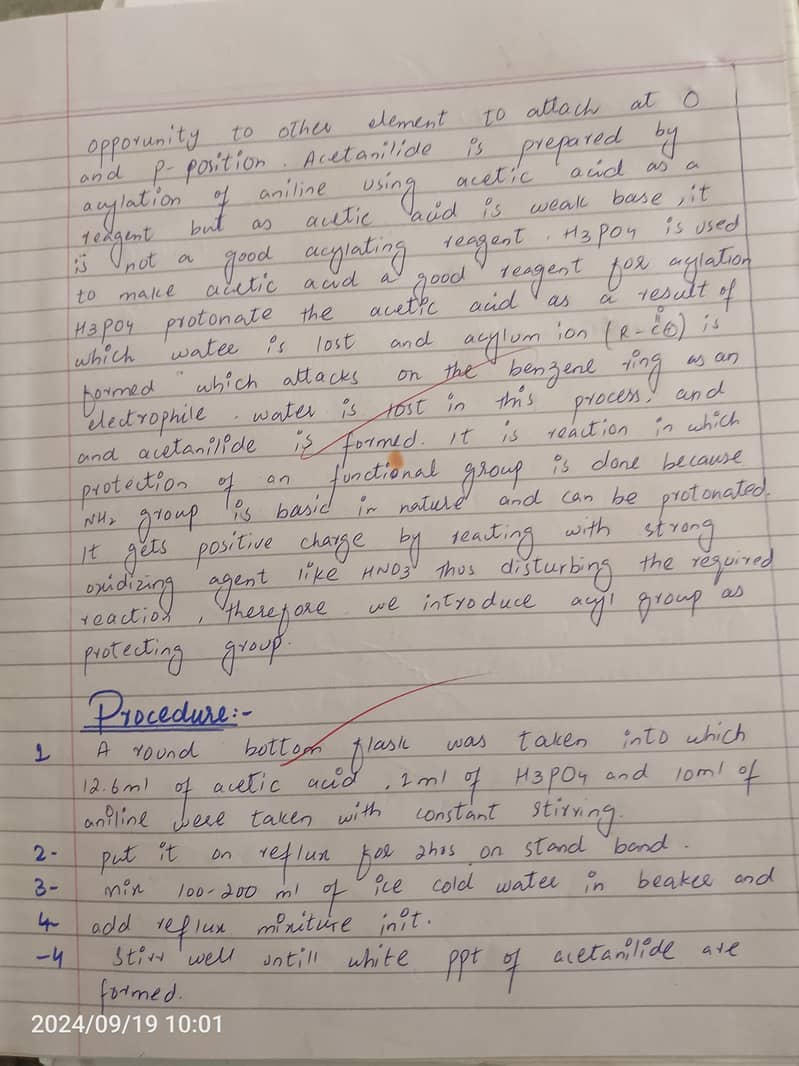 opporunity to other element to attach at O
and P-position. Acetanilide is prepared by
acylation of aniline using acetic acid as a
reagent but as acetic acid is weak base, it
is not a good acylating reagent. H3PO4 is used
to make acetic acid a good reagent for aylation
H3PO4 protonate the acetic acid as a result of
which water is lost and acylum ion (R-C⊕) is
formed which attacks on the benzene ring as an
electrophile. water is lost in this process, and
and acetanilide is formed. It is reaction in which
protection of an functional group is done because
NH2 group is basic in nature and can be protonated.
It gets positive charge by reacting with strong
oxidizing agent like HNO3 thus disturbing the required
reaction, therefore we introduce acyl group as
protecting group.
Procedure:-
1 A round bottom flask was taken into which
12.6ml of acetic acid, 2ml of H3PO4 and 10ml of
aniline were taken with constant stirring.
2- put it on reflux for 2hrs on stand band.
3- mix 100-200 ml of ice cold water in beaker and
4- add reflux mixiture init.
-4 Stirr well untill white ppt of acetanilide are
formed.
2024/09/19 10:01